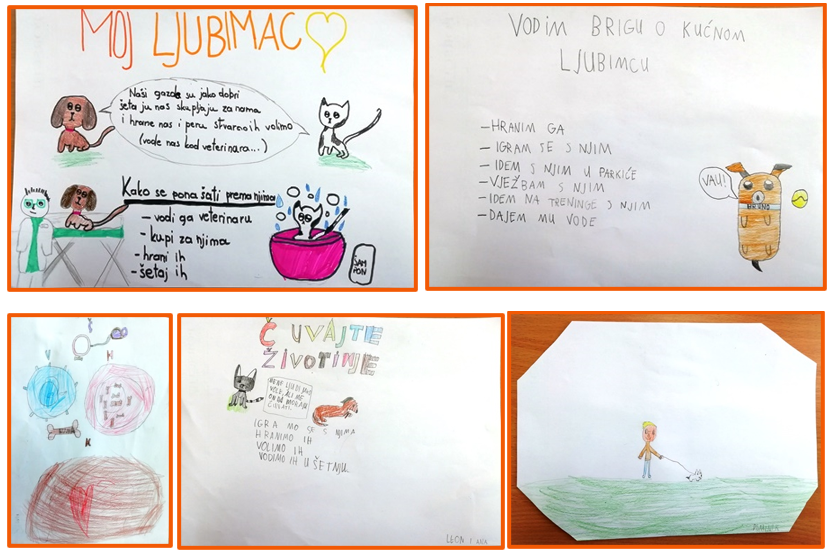 MOJ LJUBIMAC
Naši gazde su jako dobri
šetaju nas skupljaju za nama
i hrane nas i peru stvarno ih volimo
(vode nas kod veterinara...)
Kako se ponašati prema njima
- vodi ga veterinaru
- kupi za njima
- hrani ih
- šetaj ih
ŠAM
PON
VODIM BRIGU O KUĆNOM
LJUBIMCU
- HRANIM GA
- IGRAM SE S NJIM
- IDEM S NJIM U PARKIĆE
- VJEŽBAM S NJIM
- IDEM NA TRENINGE S NJIM
- DAJEM MU VODE
VAU!
BRUNO
V
H
K
ČUVAJTE
ŽIVOTINJE
MENE LJUDI JAKO
VOLE, ALI ME
ONI MORAJU
ČUVATI.
IGRAMO SE S NJIMA
HRANIMO IH
VOLIMO IH
VODIMO IH U ŠETNJU
LEON I ANA